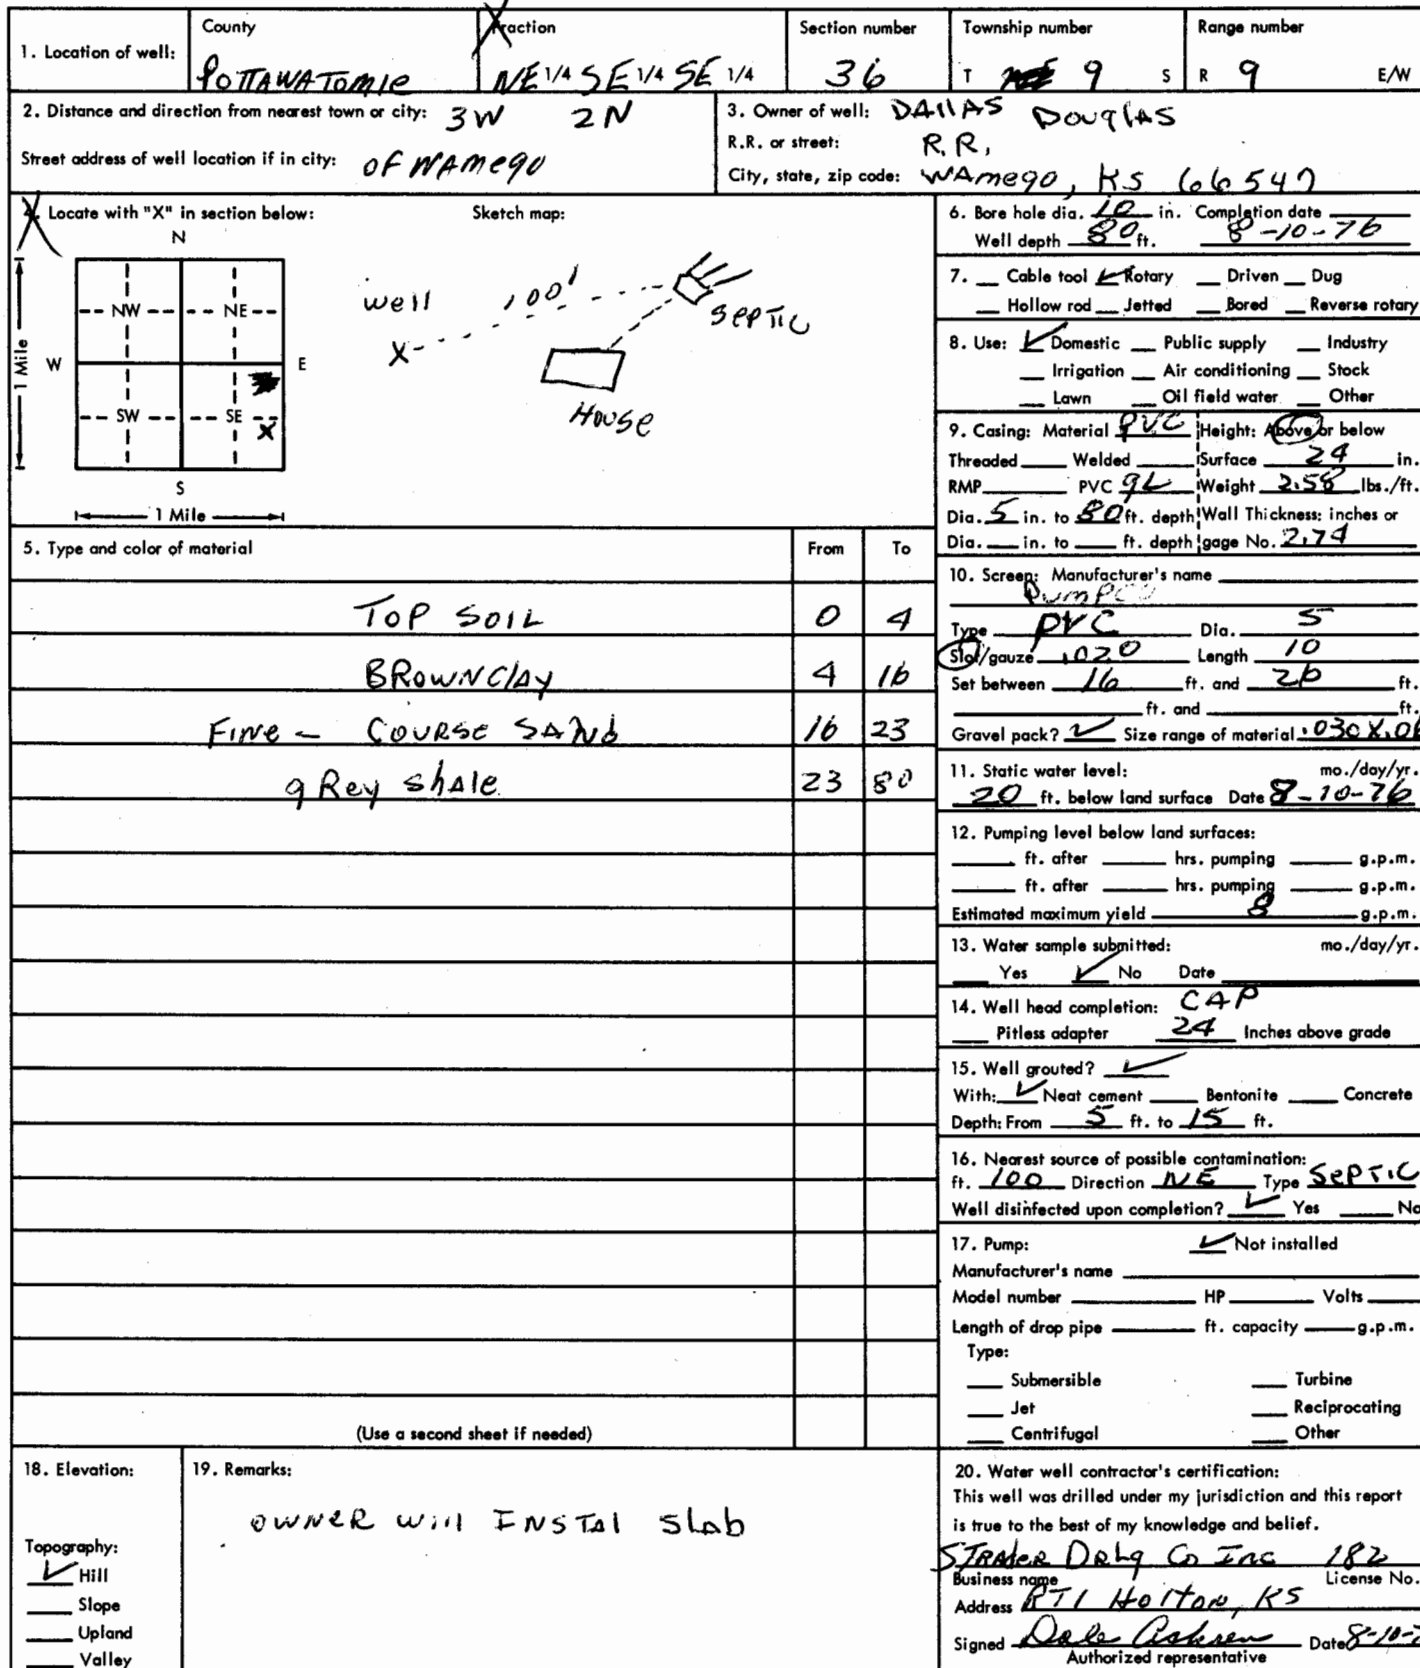 County Fraction Section number Township number Range number
1. Location of well: POTTAWATOMIE NE 1/4 SE 1/4 SE 1/4 36 T 9 S R 9 E/W
2. Distance and direction from nearest town or city: 3W 2N
Street address of well location if in city: OF WAMEGO
3. Owner of well: DALLAS DOUGLAS
R.R. or street: R.R.,
City, state, zip code: WAMEGO, KS 66547
4. Locate with "X" in section below: Sketch map:
N
NW NE
W E
SW SE X
S
1 Mile
1 Mile
well 100' SEPTIC
X
HOUSE
5. Type and color of material From To
TOP SOIL 0 4
BROWN CLAY 4 16
FINE - COURSE SAND 16 23
gRey ShAle 23 80
(Use a second sheet if needed)
6. Bore hole dia. 10 in. Completion date
Well depth 80 ft. 8-10-76
7. Cable tool ✓ Rotary Driven Dug
Hollow rod Jetted Bored Reverse rotary
8. Use: ✓ Domestic Public supply Industry
Irrigation Air conditioning Stock
Lawn Oil field water Other
9. Casing: Material PVC Height: Above or below
Threaded Welded Surface 24 in.
RMP PVC gL Weight 2.58 lbs./ft.
Dia. 5 in. to 80 ft. depth Wall Thickness: inches or
Dia. in. to ft. depth gage No. 2.74
10. Screen: Manufacturer's name
Type PVC Dia. 5
Slot/gauze .020 Length 10
Set between 16 ft. and 26 ft.
ft. and ft.
Gravel pack? ✓ Size range of material .030 X .06
11. Static water level: mo./day/yr.
20 ft. below land surface Date 8-10-76
12. Pumping level below land surfaces:
ft. after hrs. pumping g.p.m.
ft. after hrs. pumping g.p.m.
Estimated maximum yield 8 g.p.m.
13. Water sample submitted: mo./day/yr.
Yes ✓ No Date
14. Well head completion: CAP
Pitless adapter 24 Inches above grade
15. Well grouted? ✓
With: ✓ Neat cement Bentonite Concrete
Depth: From 5 ft. to 15 ft.
16. Nearest source of possible contamination:
ft. 100 Direction NE Type SEPTIC
Well disinfected upon completion? ✓ Yes No
17. Pump: ✓ Not installed
Manufacturer's name
Model number HP Volts
Length of drop pipe ft. capacity g.p.m.
Type:
Submersible Turbine
Jet Reciprocating
Centrifugal Other
18. Elevation:
Topography:
✓ Hill
Slope
Upland
Valley
19. Remarks:
OWNER Will INSTAL Slab
20. Water well contractor's certification:
This well was drilled under my jurisdiction and this report
is true to the best of my knowledge and belief.
STRADER DRLg Co Inc 182
Business name License No.
Address RT1 Holton, KS
Signed Dale Date 8-10-
Authorized representative